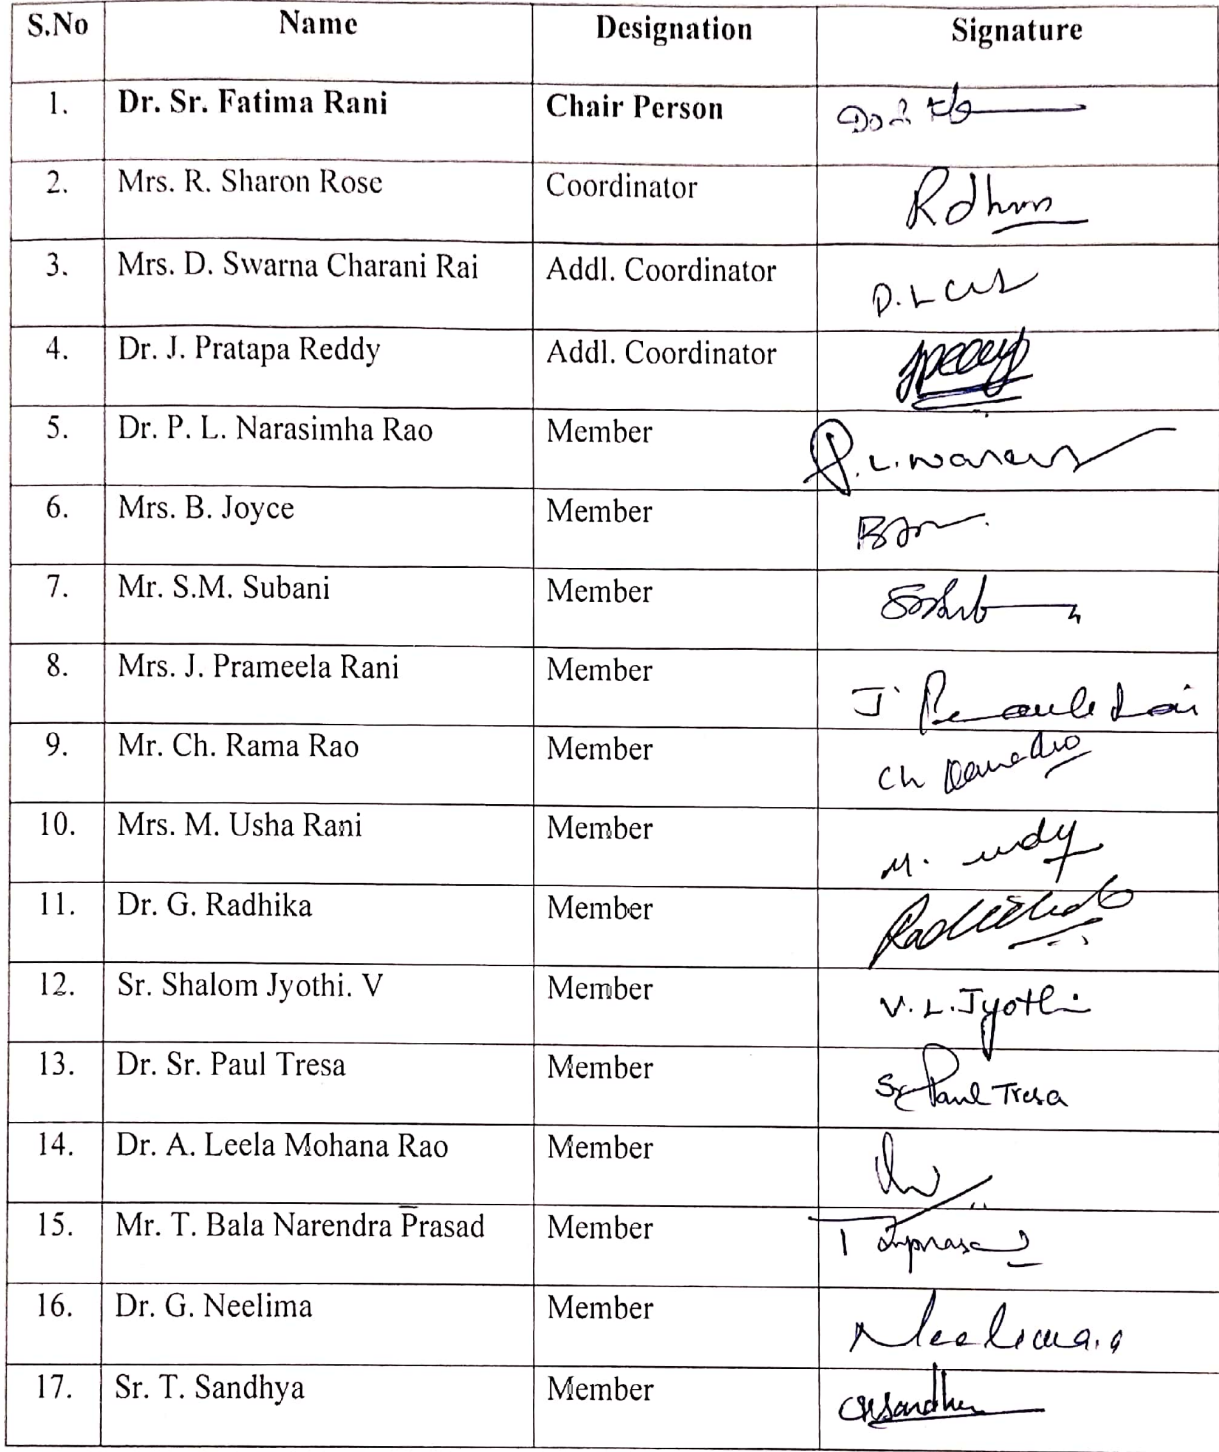 S.No Name Designation Signature
1. Dr. Sr. Fatima Rani Chair Person
2. Mrs. R. Sharon Rose Coordinator
3. Mrs. D. Swarna Charani Rai Addl. Coordinator
4. Dr. J. Pratapa Reddy Addl. Coordinator
5. Dr. P. L. Narasimha Rao Member
6. Mrs. B. Joyce Member
7. Mr. S.M. Subani Member
8. Mrs. J. Prameela Rani Member
9. Mr. Ch. Rama Rao Member
10. Mrs. M. Usha Rani Member
11. Dr. G. Radhika Member
12. Sr. Shalom Jyothi. V Member V. L. Jyothi
13. Dr. Sr. Paul Tresa Member Sr Paul Tresa
14. Dr. A. Leela Mohana Rao Member
15. Mr. T. Bala Narendra Prasad Member
16. Dr. G. Neelima Member
17. Sr. T. Sandhya Member